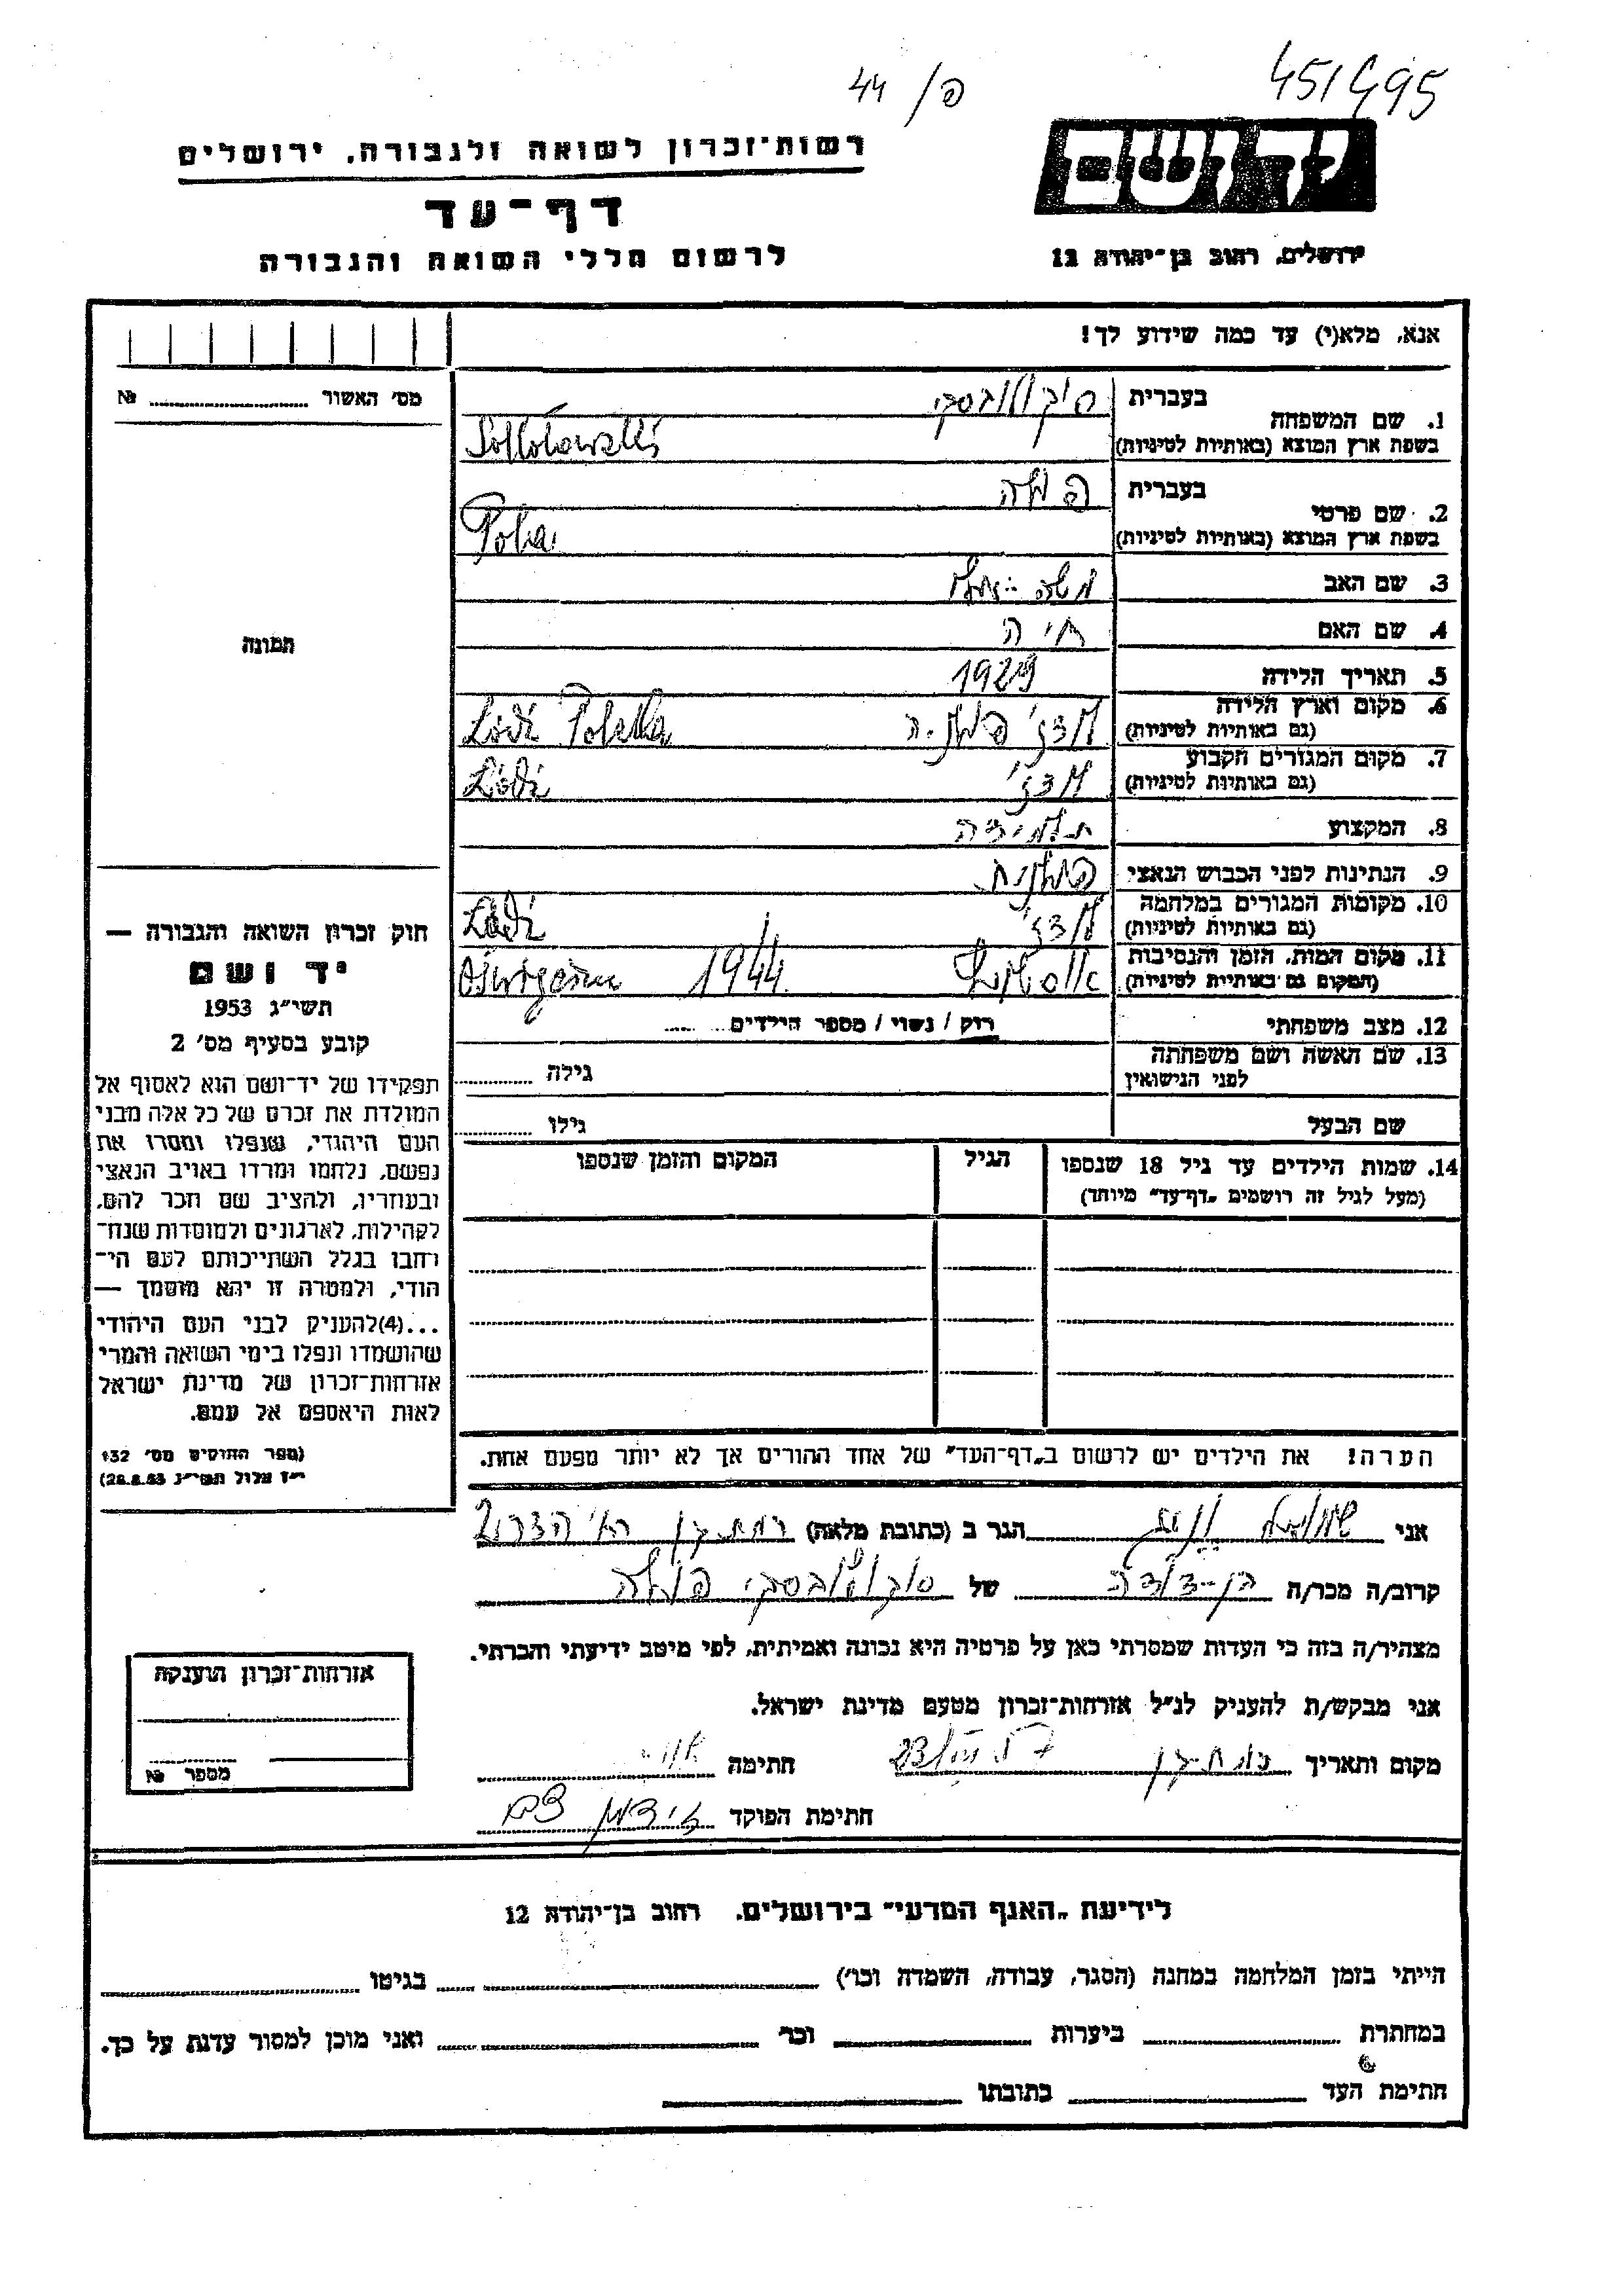 451495
פ/ 44
יד ושם
ירושלים, רחוב בן־יהודה 12
רשות־זכרון לשואה ולגבורה, ירושלים
דף־עד
לרשום חללי השואה והגבורה
אנא, מלא(י) עד כמה שידוע לך!
מס׳ האשור № 
תמונה
1. שם המשפחה
בעברית
בשפת ארץ המוצא (באותיות לטיניות)
2. שם פרטי
בעברית פולה
בשפת ארץ המוצא (באותיות לטיניות) Pola
3. שם האב
4. שם האם חיה
5. תאריך הלידה 1929
6. מקום וארץ הלידה לודז׳ פולניה Łódź Polska
(גם באותיות לטיניות)
7. מקום המגורים הקבוע לודז׳ Łódź
(גם באותיות לטיניות)
8. המקצוע תלמידה
9. הנתינות לפני הכבוש הנאצי פולנית
10. מקומות המגורים במלחמה לודז׳ Łódź
(גם באותיות לטיניות)
11. מקום המות, הזמן והנסיבות 1944
(המקום גם באותיות לטיניות)
12. מצב משפחתי רוק / נשוי / מספר הילדים
13. שם האשה ושם משפחתה
לפני הנישואין
גילה
שם הבעל גילו
14. שמות הילדים עד גיל 18 שנספו
(מעל לגיל זה רושמים „דף־עד״ מיוחד)
הגיל
המקום והזמן שנספו
הערה! את הילדים יש לרשום ב„דף־העד״ של אחד ההורים אך לא יותר מפעם אחת.
חוק זכרון השואה והגבורה —
יד ושם
תשי״ג 1953
קובע בסעיף מס׳ 2
תפקידו של יד־ושם הוא לאסוף אל
המולדת את זכרם של כל אלה מבני
העם היהודי, שנפלו ומסרו את
נפשם, נלחמו ומרדו באויב הנאצי
ובעוזריו, ולהציב שם וזכר להם,
לקהילות, לארגונים ולמוסדות שנח־
רחבו בגלל השתייכותם לעם הי־
הודי, ולמטרה זו יהא מוסמך —
...(4)להעניק לבני העם היהודי
שהושמדו ונפלו בימי השואה והמרי
אזרחות־זכרון של מדינת ישראל
לאות היאספם אל עמם.
(ספר החוקים מס׳ 132
י״ז אלול תשי״ג 28.8.53)
אני הגר ב (כתובת מלאה) רמת גן
קרוב/ה מכר/ה בן-דודה של פולה
מצהיר/ה בזה כי העדות שמסרתי כאן על פרטיה היא נכונה ואמיתית, לפי מיטב ידיעתי והכרתי.
אני מבקש/ת להעניק לנ״ל אזרחות־זכרון מטעם מדינת ישראל.
מקום ותאריך רמת גן חתימה
חתימת הפוקד
אזרחות־זכרון הוענקה
מספר №
לידיעת „האגף המדעי״ בירושלים, רחוב בן־יהודה 12
הייתי בזמן המלחמה במחנה (הסגר, עבודה, השמדה וכו׳) בגיטו
במחתרת ביערות וכו׳ ואני מוכן למסור עדות על כך.
חתימת העד כתובתו